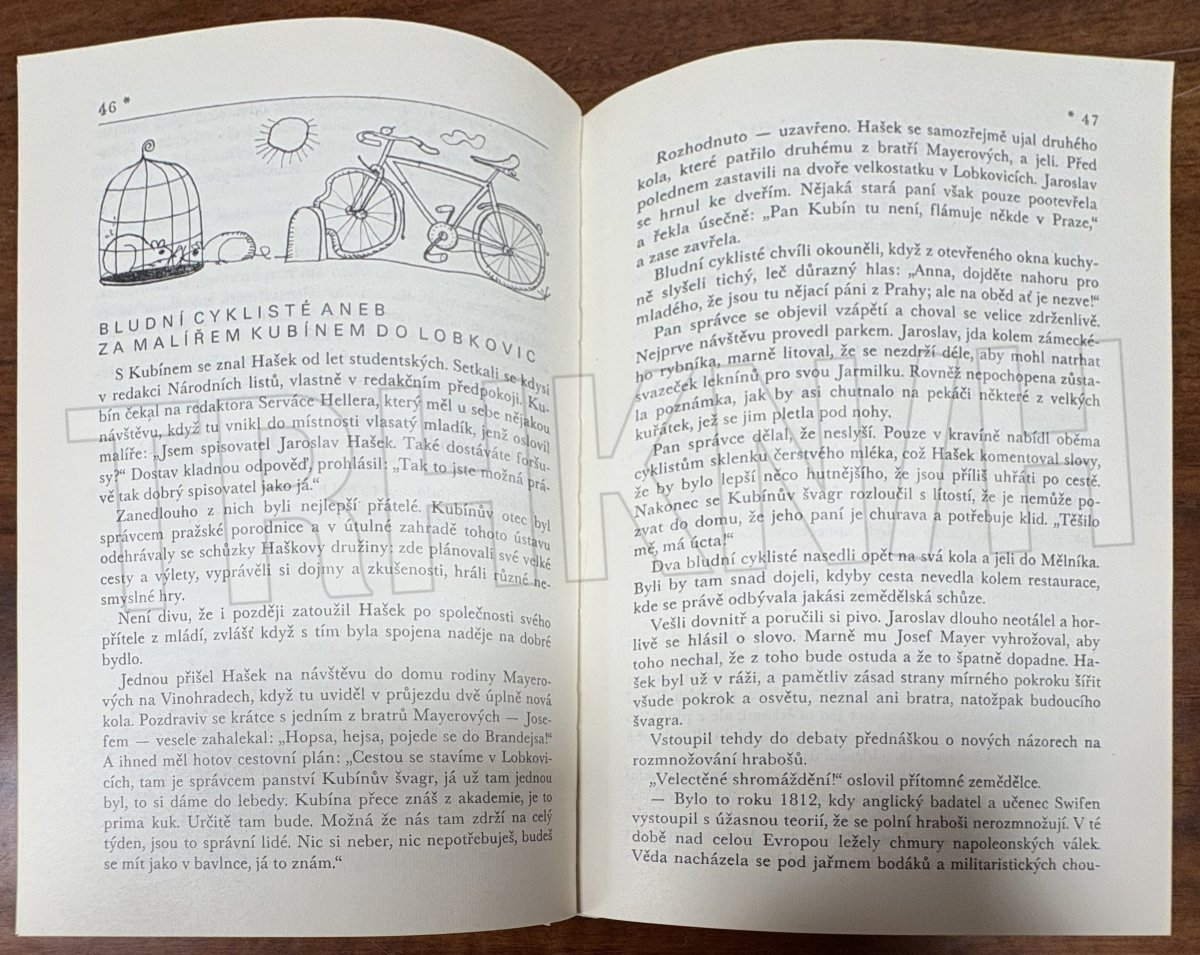 46 *
BLUDNÍ CYKLISTÉ ANEB
ZA MALÍŘEM KUBÍNEM DO LOBKOVIC
S Kubínem se znal Hašek od let studentských. Setkali se kdysi
v redakci Národních listů, vlastně v redakčním předpokoji. Ku-
bín čekal na redaktora Serváce Hellera, který měl u sebe nějakou
návštěvu, když tu vnikl do místnosti vlasatý mladík, jenž oslovil
malíře: „Jsem spisovatel Jaroslav Hašek. Také dostáváte foršu-
sy?“ Dostav kladnou odpověď, prohlásil: „Tak to jste možná prá-
vě tak dobrý spisovatel jako já.“
Zanedlouho z nich byli nejlepší přátelé. Kubínův otec byl
správcem pražské porodnice a v útulné zahradě tohoto ústavu
odehrávaly se schůzky Haškovy družiny; zde plánovali své velké
cesty a výlety, vyprávěli si dojmy a zkušenosti, hráli různé ne-
smyslné hry.
Není divu, že i později zatoužil Hašek po společnosti svého
přítele z mládí, zvlášť když s tím byla spojena naděje na dobré
bydlo.
Jednou přišel Hašek na návštěvu do domu rodiny Mayero-
vých na Vinohradech, když tu uviděl v průjezdu dvě úplně nová
kola. Pozdraviv se krátce s jedním z bratrů Mayerových — Jose-
fem — vesele zahalekal: „Hopsa, hejsa, pojede se do Brandejsa!“
A ihned měl hotov cestovní plán: „Cestou se stavíme v Lobkovi-
cích, tam je správcem panství Kubínův švagr, já už tam jednou
byl, to si dáme do lebedy. Kubína přece znáš z akademie, je to
prima kuk. Určitě tam bude. Možná že nás tam zdrží na celý
týden, jsou to správní lidé. Nic si neber, nic nepotřebuješ, budeš
se mít jako v bavlnce, já to znám.“
* 47
Rozhodnuto — uzavřeno. Hašek se samozřejmě ujal druhého
kola, které patřilo druhému z bratří Mayerových, a jeli. Před
polednem zastavili na dvoře velkostatku v Lobkovicích. Jaroslav
se hrnul ke dveřím. Nějaká stará paní však pouze pootevřela
a řekla úsečně: „Pan Kubín tu není, flámuje někde v Praze,“
a zase zavřela.
Bludní cyklisté chvíli okouněli, když z otevřeného okna kuchy-
ně slyšeli tichý, leč důrazný hlas: „Anna, dojděte nahoru pro
mladého, že jsou tu nějací páni z Prahy; ale na oběd ať je nezve!“
Pan správce se objevil vzápětí a choval se velice zdrženlivě.
Nejprve návštěvu provedl parkem. Jaroslav, jda kolem zámecké-
ho rybníka, marně litoval, že se nezdrží déle, aby mohl natrhat
svazeček leknínů pro svou Jarmilku. Rovněž nepochopena zůsta-
la poznámka, jak by asi chutnalo na pekáči některé z velkých
kuřátek, jež se jim pletla pod nohy.
Pan správce dělal, že neslyší. Pouze v kravíně nabídl oběma
cyklistům sklenku čerstvého mléka, což Hašek komentoval slovy,
že by bylo lepší něco hutnějšího, že jsou příliš uhřáti po cestě.
Nakonec se Kubínův švagr rozloučil s lítostí, že je nemůže po-
zvat do domu, že jeho paní je churava a potřebuje klid. „Těšilo
mě, má úcta!“
Dva bludní cyklisté nasedli opět na svá kola a jeli do Mělníka.
Byli by tam snad dojeli, kdyby cesta nevedla kolem restaurace,
kde se právě odbývala jakási zemědělská schůze.
Vešli dovnitř a poručili si pivo. Jaroslav dlouho neotálel a hor-
livě se hlásil o slovo. Marně mu Josef Mayer vyhrožoval, aby
toho nechal, že z toho bude ostuda a že to špatně dopadne. Ha-
šek byl už v ráži, a pamětliv zásad strany mírného pokroku šířit
všude pokrok a osvětu, neznal ani bratra, natožpak budoucího
švagra.
Vstoupil tehdy do debaty přednáškou o nových názorech na
rozmnožování hrabošů.
„Velectěné shromáždění!“ oslovil přítomné zemědělce.
— Bylo to roku 1812, kdy anglický badatel a učenec Swifen
vystoupil s úžasnou teorií, že se polní hraboši nerozmnožují. V té
době nad celou Evropou ležely chmury napoleonských válek.
Věda nacházela se pod jařmem bodáků a militaristických chou-
TRHKNIH